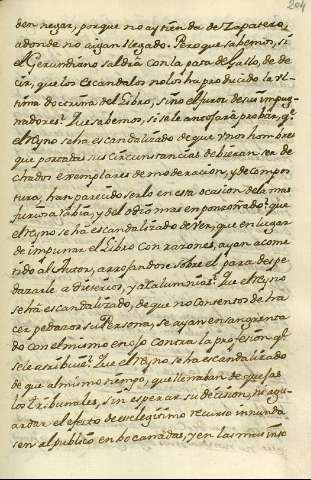 204
den negar, porque no ay tienda de Zapatero,
adonde no aigan llegado. Pero que sabemos, si
el Gerundiano saldrà con la pata del Gallo, de de-
cir, que los escandalos no los ha producido la ul-
tima doctrina del Libro, sino el furor de sus impug-
nadores? Que sabemos, si se le antojarà probar, q.e
el Reyno se ha escandalizado de que unos hombres
que por todas sus circunstancias debieran ser de-
chados exemplares de moderacion, y de compos-
tura, han parecido serlo en esta ocasion de la mas
furiosa rabia, y del odio mas emponzoñado? que
el Reyno se ha escandalizado de ver, que en lugar
de impugnar el Libro con razones, ayan acome-
tido al Autor, arrojandose sobre el para despe-
dazarle a dicterios, y a calumnias? Que el Reyno
se ha escandalizado, de que no contentos de ha-
cer pedazos su Persona, se ayan ensangrenta-
do con el mismo enojo contra la profesion, q.e
se le atribuie? Que el Reyno se ha escandalizado
de que al mismo tiempo, que llenaban de quejas
los tribunales, sin esperar su decision, ni agu-
ardar el efecto de ese legitimo recurso inunda-
sen al publico en bocanadas, y en las mas